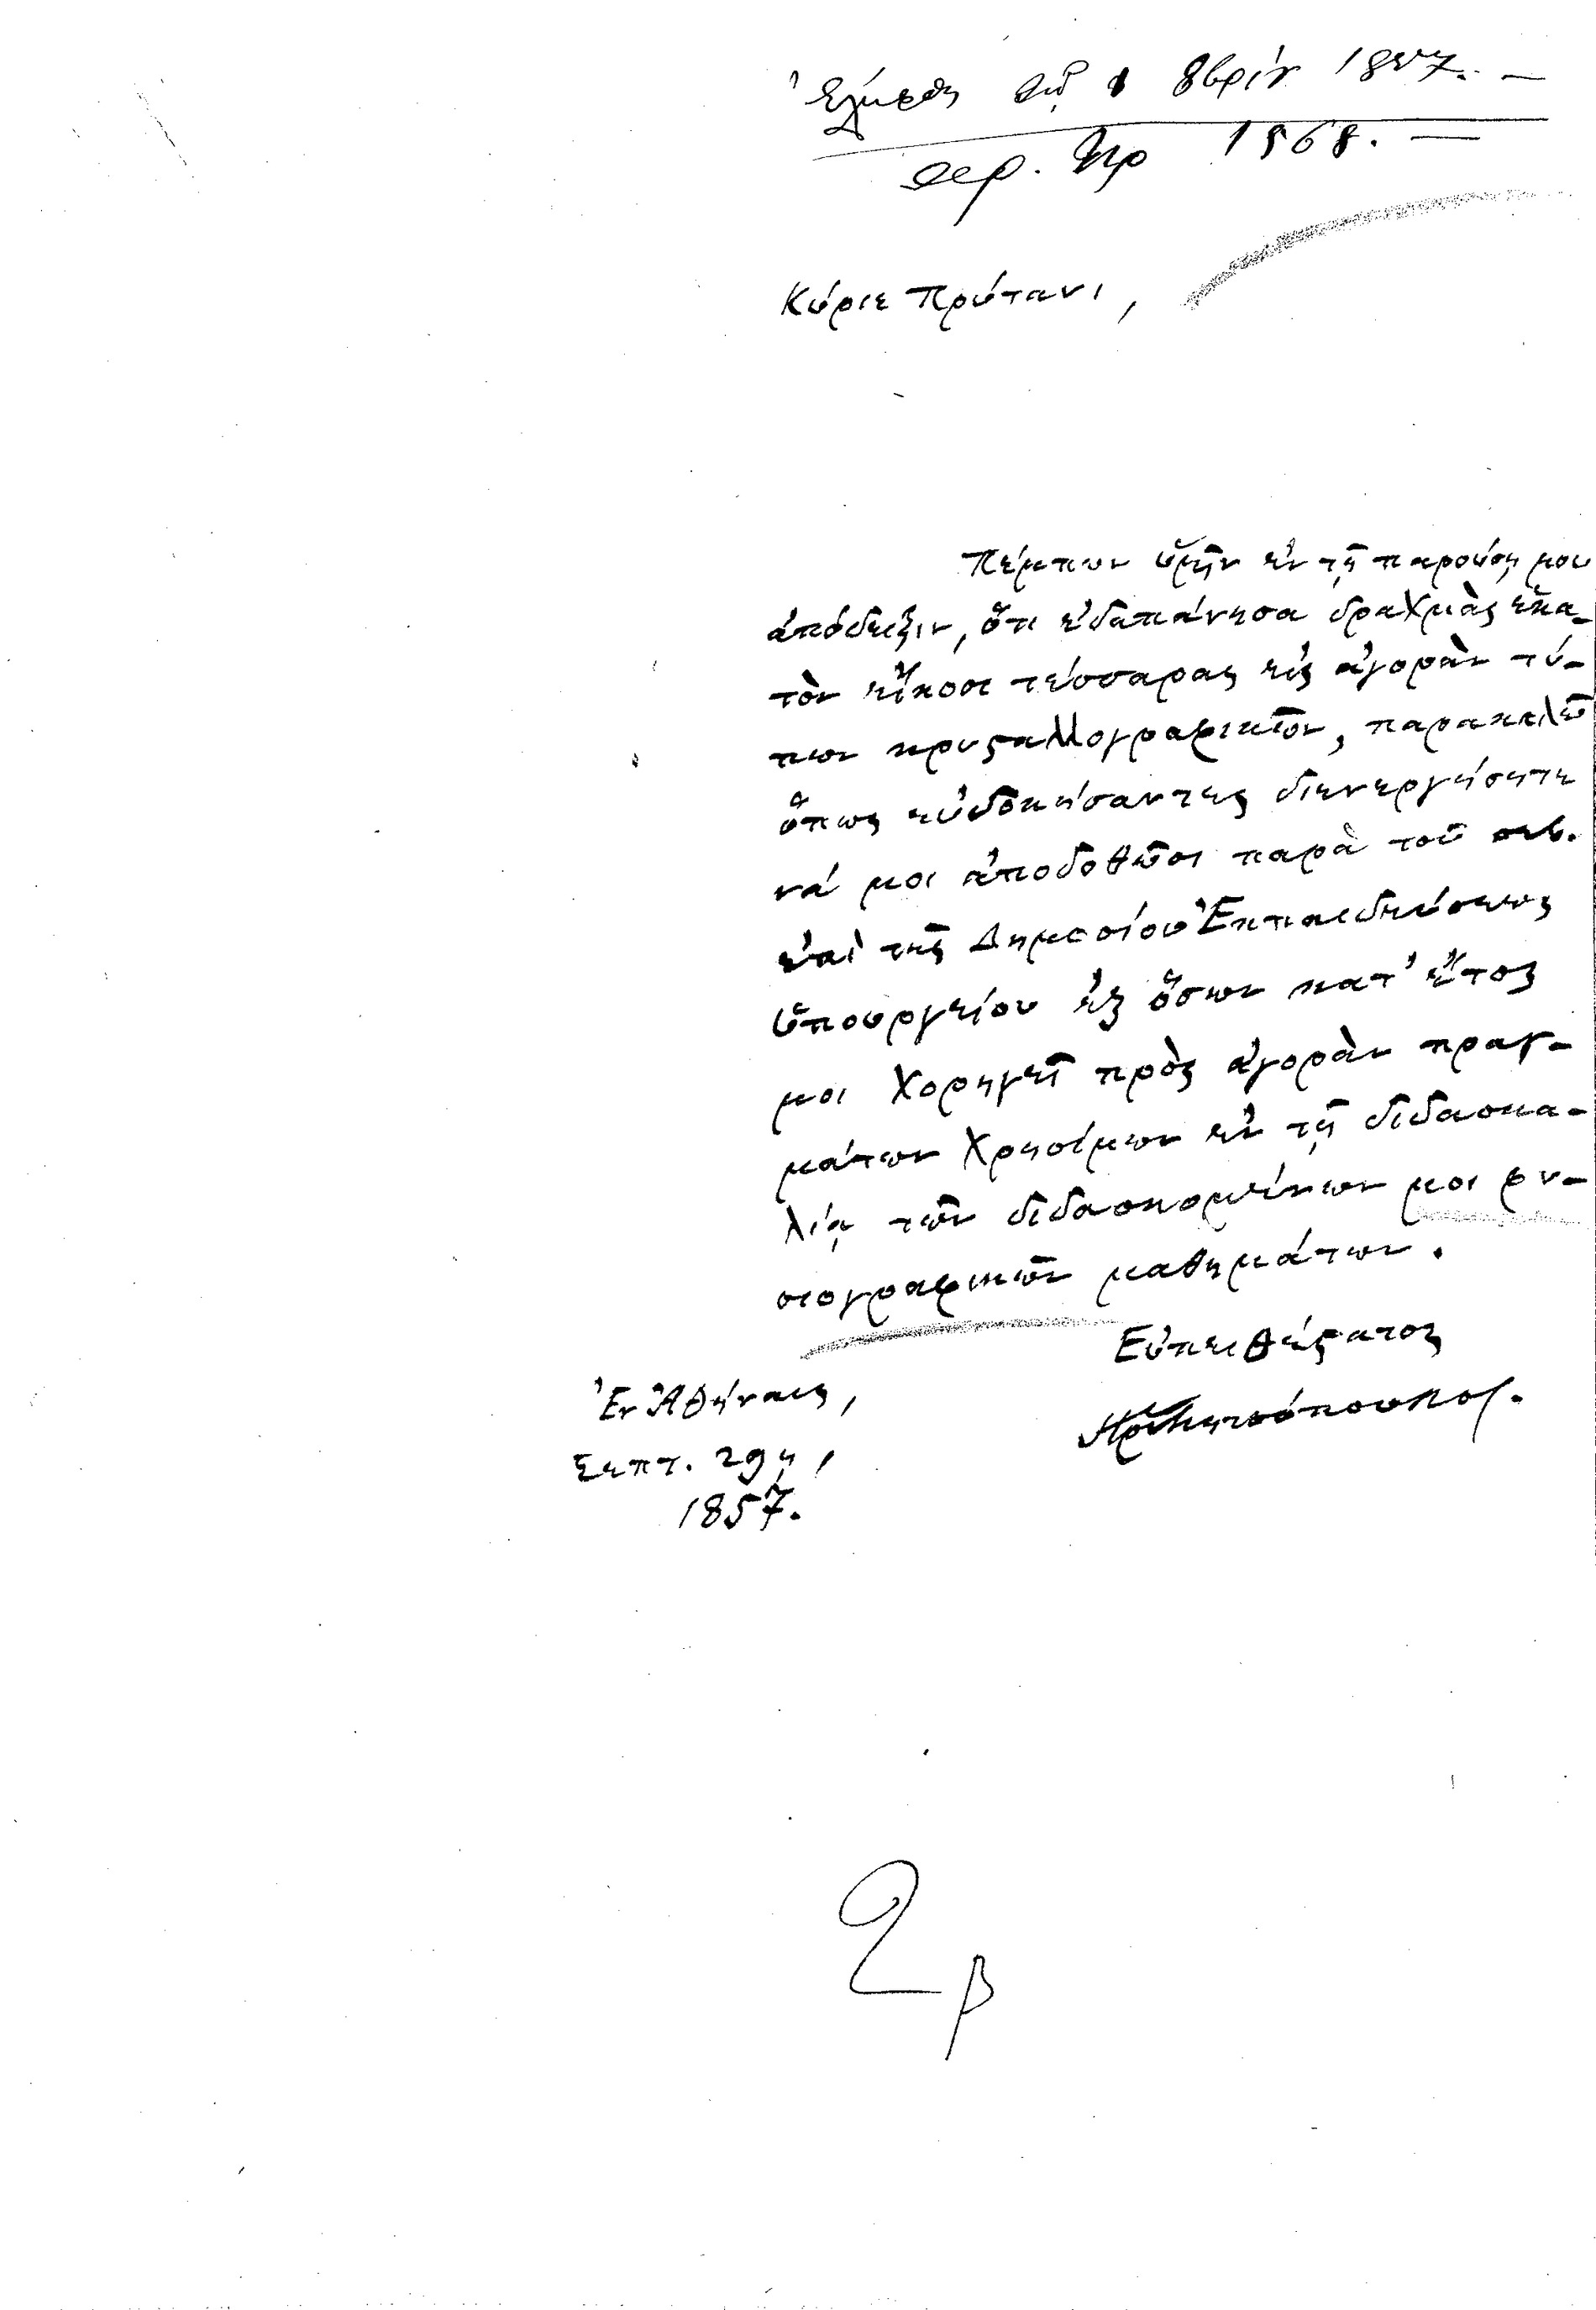 Ἐλήφθη τῇ 1 8βρίου 1857. —
ἀρ. πρ 1568. —
Κύριε Πρύτανι,
Πέμπων ὑμῖν ἐν τῇ παρούσῃ μου
ἀπόδειξιν, ὅτι ἐδαπάνησα δραχμὰς ἑκα-
τὸν εἴκοσι τέσσαρας εἰς ἀγορὰν τύ-
πων κρυϛαλλογραφικῶν, παρακαλῶ
ὅπως εὐδοκήσαντες διενεργήσητε
νά μοι ἀποδοθῶσι παρὰ τοῦ σεβ.
ἐπὶ τῆς Δημοσίου Ἐκπαιδεύσεως
ὑπουργείου ἐξ ὅσων κατ' ἔτος
μοι χορηγεῖ πρὸς ἀγορὰν πραγ-
μάτων χρησίμων ἐν τῇ διδασκα-
λίᾳ τῶν διδασκομένων μοι φυ-
σιογραφικῶν μαθημάτων.
Εὐπειθέϛατος
Ἐν Ἀθήναις,
Σεπτ. 29ῃ,
1857.
β